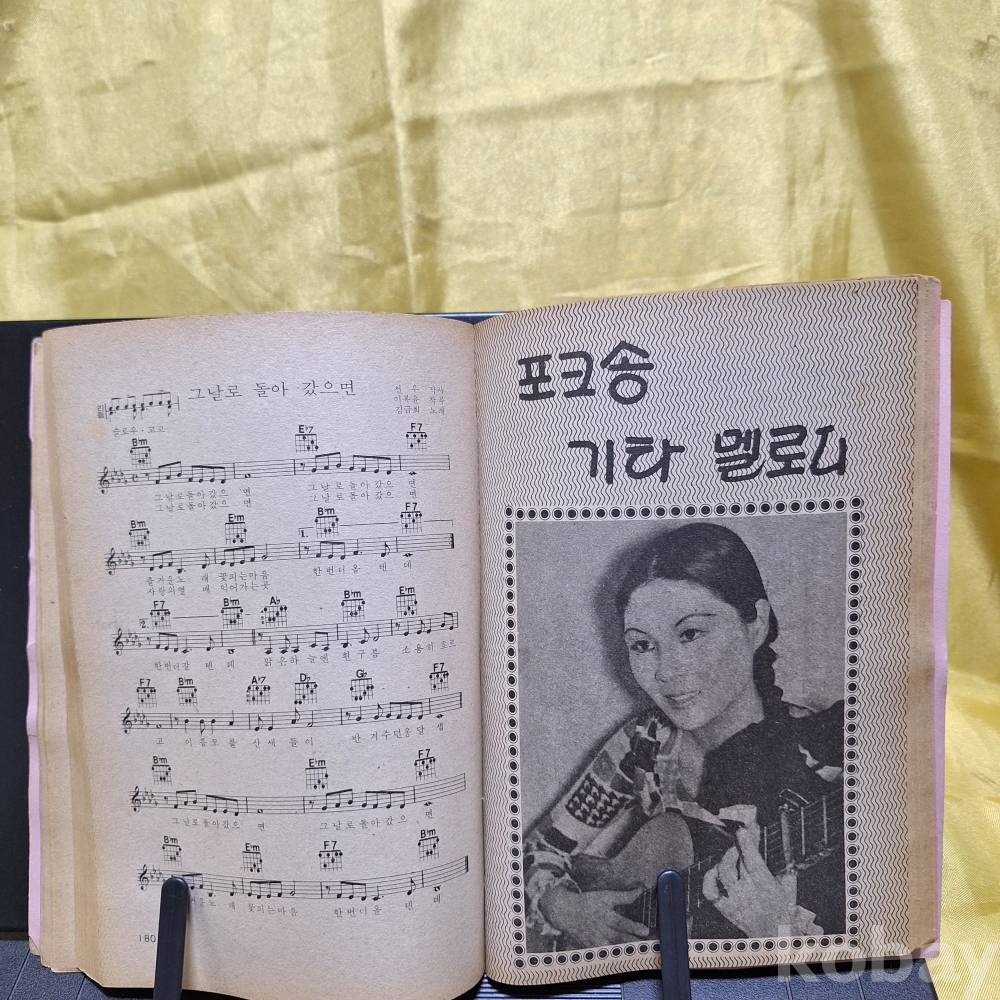 그날로 돌아 갔으면
선 우 작사
이복윤 작곡
김금희 노래
리듬
슬로우·고고
B♭m E♭7 F7
그날로돌아갔으 면 그날로돌아갔으 면
그날로돌아갔으 면 그날로돌아갔으 면
B♭m E♭m B♭m F7
1.
즐거운노 래 꽃피는마음 한번더올 텐 데
사랑의열 매 익어가는곳
F7 B♭m A♭ B♭m E♭m
2.
한번더갈 텐 데 맑은하 늘엔 흰구름 소용히흐르
F7 B♭m A♭7 D♭ G♭ F7
고 이름모를 산새들이 반겨주던옹달샘
B♭m E♭m F7
그날로돌아갔으 면 그날로돌아갔으 면
E♭m F7 B♭m
거운노 래 꽃피는마음 한번더올 텐 데
180
포크송
기타 멜로디
kobay